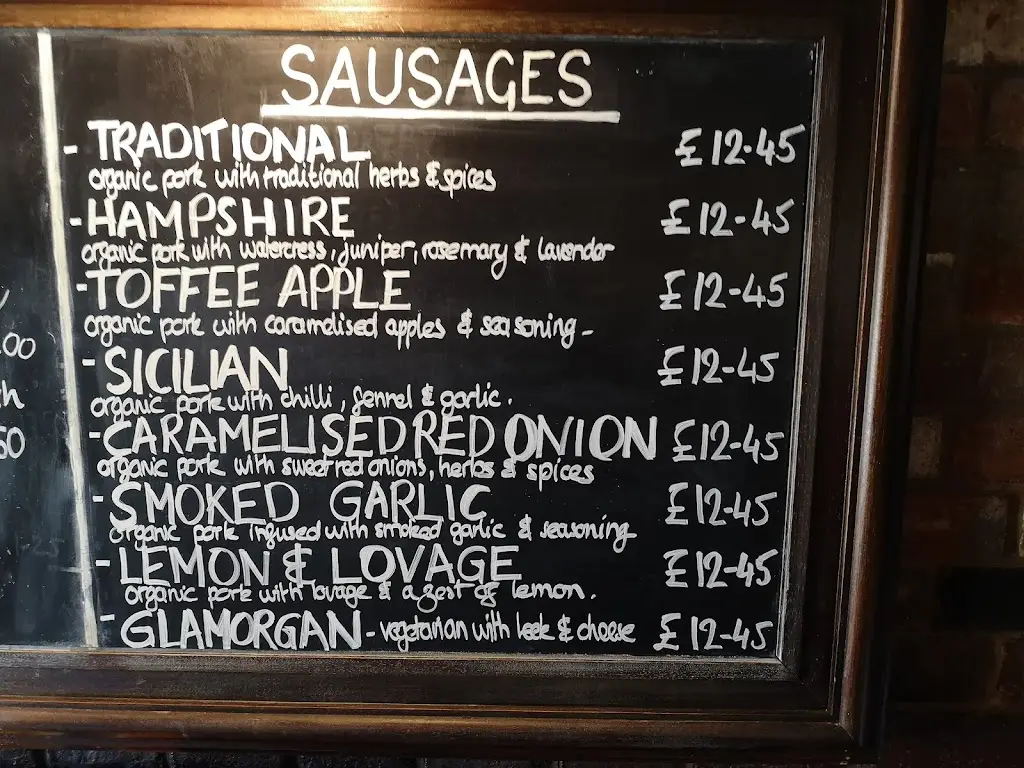 SAUSAGES
- TRADITIONAL £12-45
organic pork with traditional herbs & spices
- HAMPSHIRE £12-45
organic pork with watercress, juniper, rosemary & lavender
- TOFFEE APPLE £12-45
organic pork with caramelised apples & seasoning -
- SICILIAN £12-45
organic pork with chilli, fennel & garlic.
- CARAMELISED RED ONION £12-45
organic pork with sweet red onions, herbs & spices
- SMOKED GARLIC £12-45
organic pork infused with smoked garlic & seasoning
- LEMON & LOVAGE £12-45
organic pork with lovage & a zest of lemon.
- GLAMORGAN - vegetarian with leek & cheese £12-45
.00
h
50